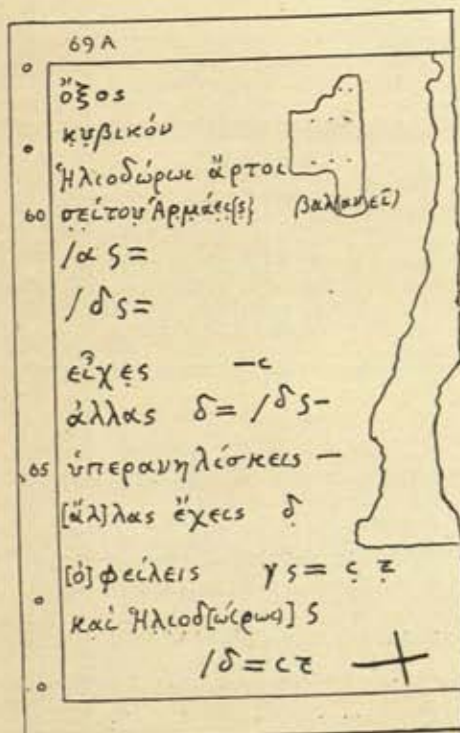 69 A
ὄξος
κυβικόν
Ἡλιοδώρωι ἄρτοι
60 σείτου Ἁρμάει{ς} βαλ(ανεῖ)
/α ϛ =
/δ ϛ =
εἶχες — c
ἄλλας δ = /δ ϛ —
65 ὑπερανηλίσκεις —
[ἄλ]λας ἔχεις δ
[ὀ]φείλεις γ ϛ = c z
καὶ Ἡλιοδ[ώ(ρωι)] ϛ
/δ = c z